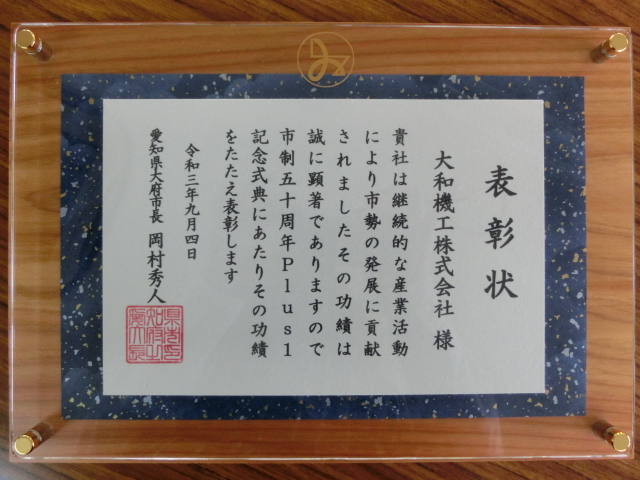 表彰状
大和機工株式会社 様
貴社は継続的な産業活動
により市勢の発展に貢献
されましたその功績は
誠に顕著でありますので
市制五十周年Plus1
記念式典にあたりその功績
をたたえ表彰します
令和三年九月四日
愛知県大府市長 岡村秀人